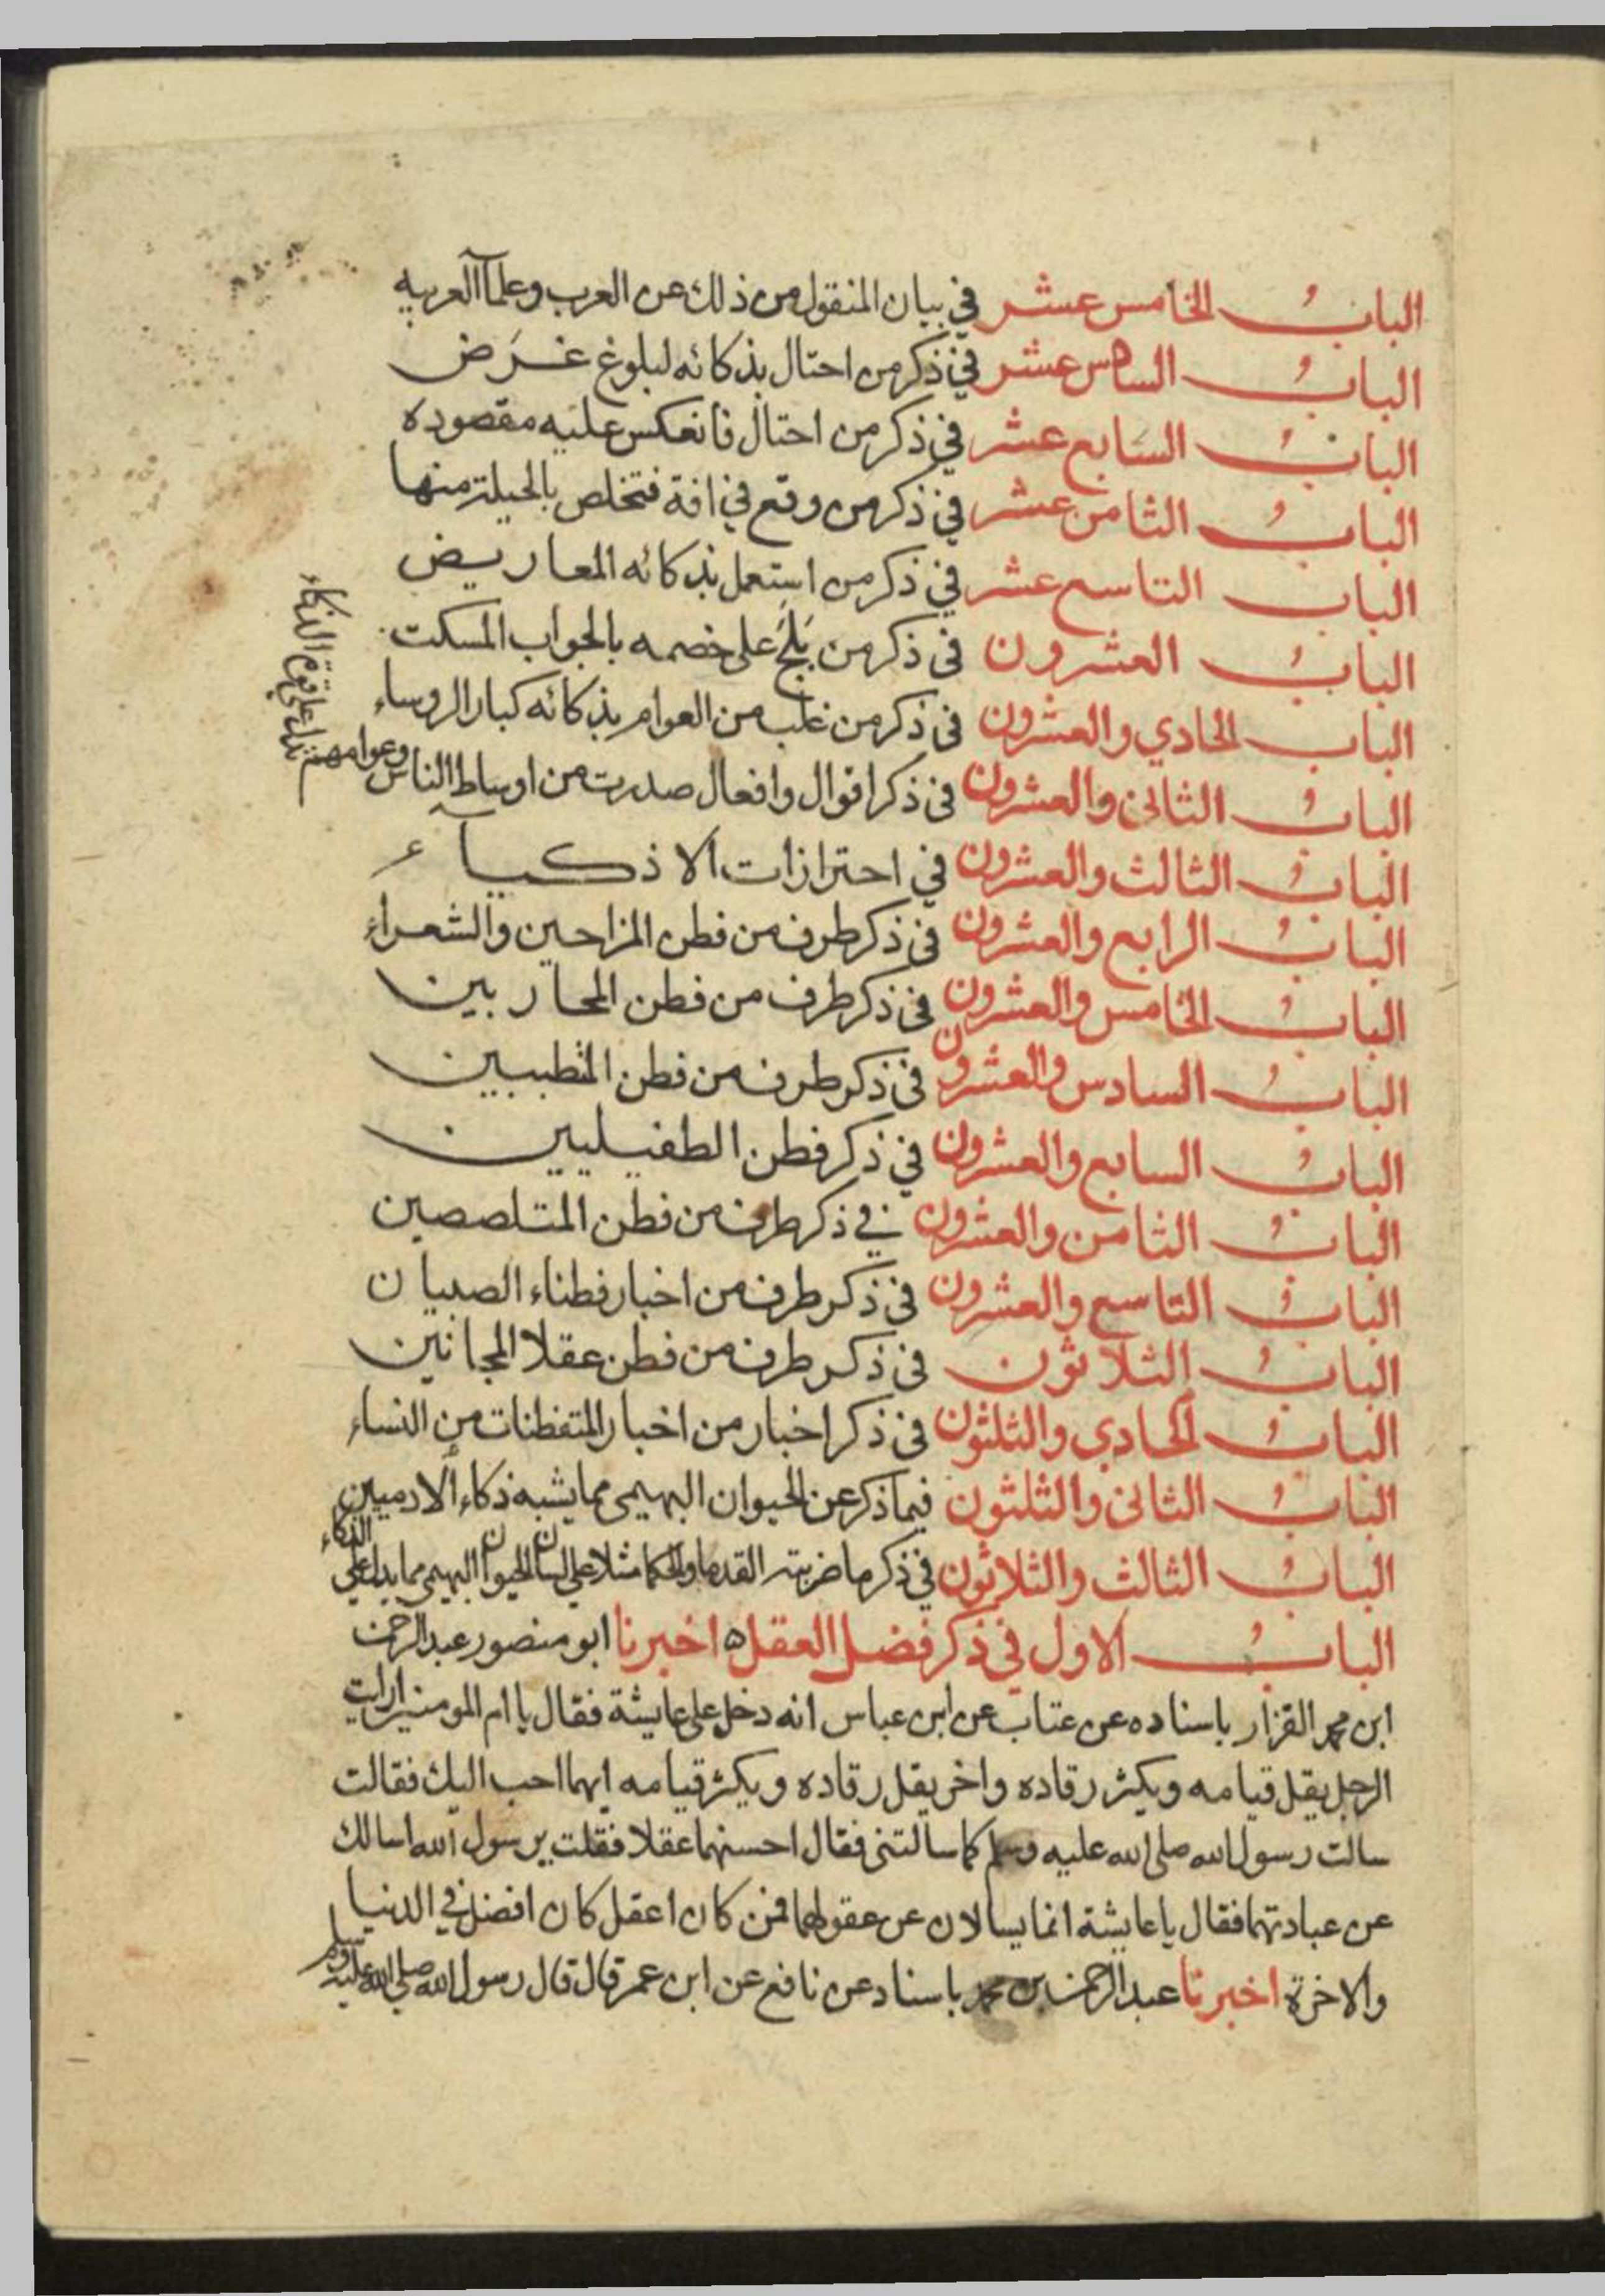 الباب الخامس عشر في بيان المنقول من ذلك عن العرب وعلمآ العربيه
الباب السادس عشر في ذكر من احتال بذكائه لبلوغ غرض
الباب السابع عشر في ذكر من احتال فانعكس عليه مقصوده
الباب الثامن عشر في ذكر من وقع في افة فتخلص بالحيلة منها
الباب التاسع عشر في ذكر من استعمل بذكائه المعاريض
الباب العشرون في ذكر من بلج على خصمه بالجواب المسكت
الباب الحادي والعشرون في ذكر من غلب من العوام بذكائه كبار الروساء
الباب الثاني والعشرون في ذكر اقوال وافعال صدرت من اوساط الناس وعوامهم تدل على قوة الذكاء
الباب الثالث والعشرون في احترازات الاذكيآء
الباب الرابع والعشرون في ذكر طرف من فطن المزاحين والشعراء
الباب الخامس والعشرون في ذكر طرف من فطن المحاربين
الباب السادس والعشرون في ذكر طرف من فطن المتطببين
الباب السابع والعشرون في ذكر فطن الطفيليين
الباب الثامن والعشرون في ذكر طرف من فطن المتلصصين
الباب التاسع والعشرون في ذكر طرف من اخبار فطناء الصبيان
الباب الثلاثون في ذكر طرف من فطن عقلا المجانين
الباب الحادي والثلثون في ذكر اخبار من اخبار المتفطنات من النساء
الباب الثاني والثلثون فيما ذكر عن الحيوان البهيمي مما يشبه ذكاء الادميين
الباب الثالث والثلاثون في ذكر ما ضربته القدما والحكما مثلا على لسان الحيوان البهيمي مما يدل على الذكاء
الباب الاول في ذكر فضل العقل ه اخبرنا ابو منصور عبد الرحمن
ابن محمد القزاز باسناده عن عتاب عن ابن عباس انه دخل على عايشة فقال يا ام المومنين ارايت
الرجل يقل قيامه ويكثر رقاده واخر يقل رقاده ويكثر قيامه ايهما احب اليك فقالت
سالت رسول الله صلى الله عليه وسلم كما سالتني فقال احسنهما عقلا فقلت يرسول الله اسالك
عن عبادتهما فقال يا عايشة انما يسالان عن عقولهما فمن كان اعقل كان افضل في الدنيا
والاخرة اخبرنا عبد الرحمن بن محمد باسناد عن نافع عن ابن عمر قال قال رسول الله صلى الله عليه وسلم